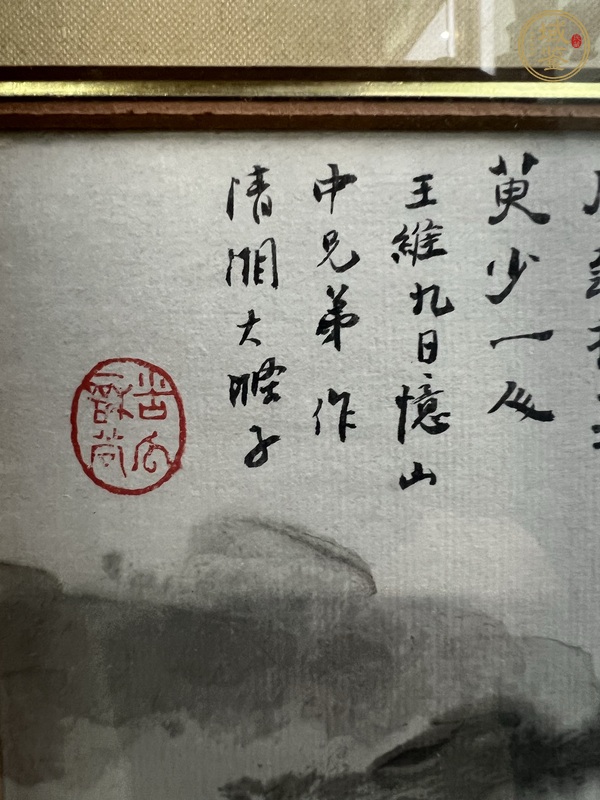 萸少一人
王維九日憶山
中兄弟作
清湘大滌子